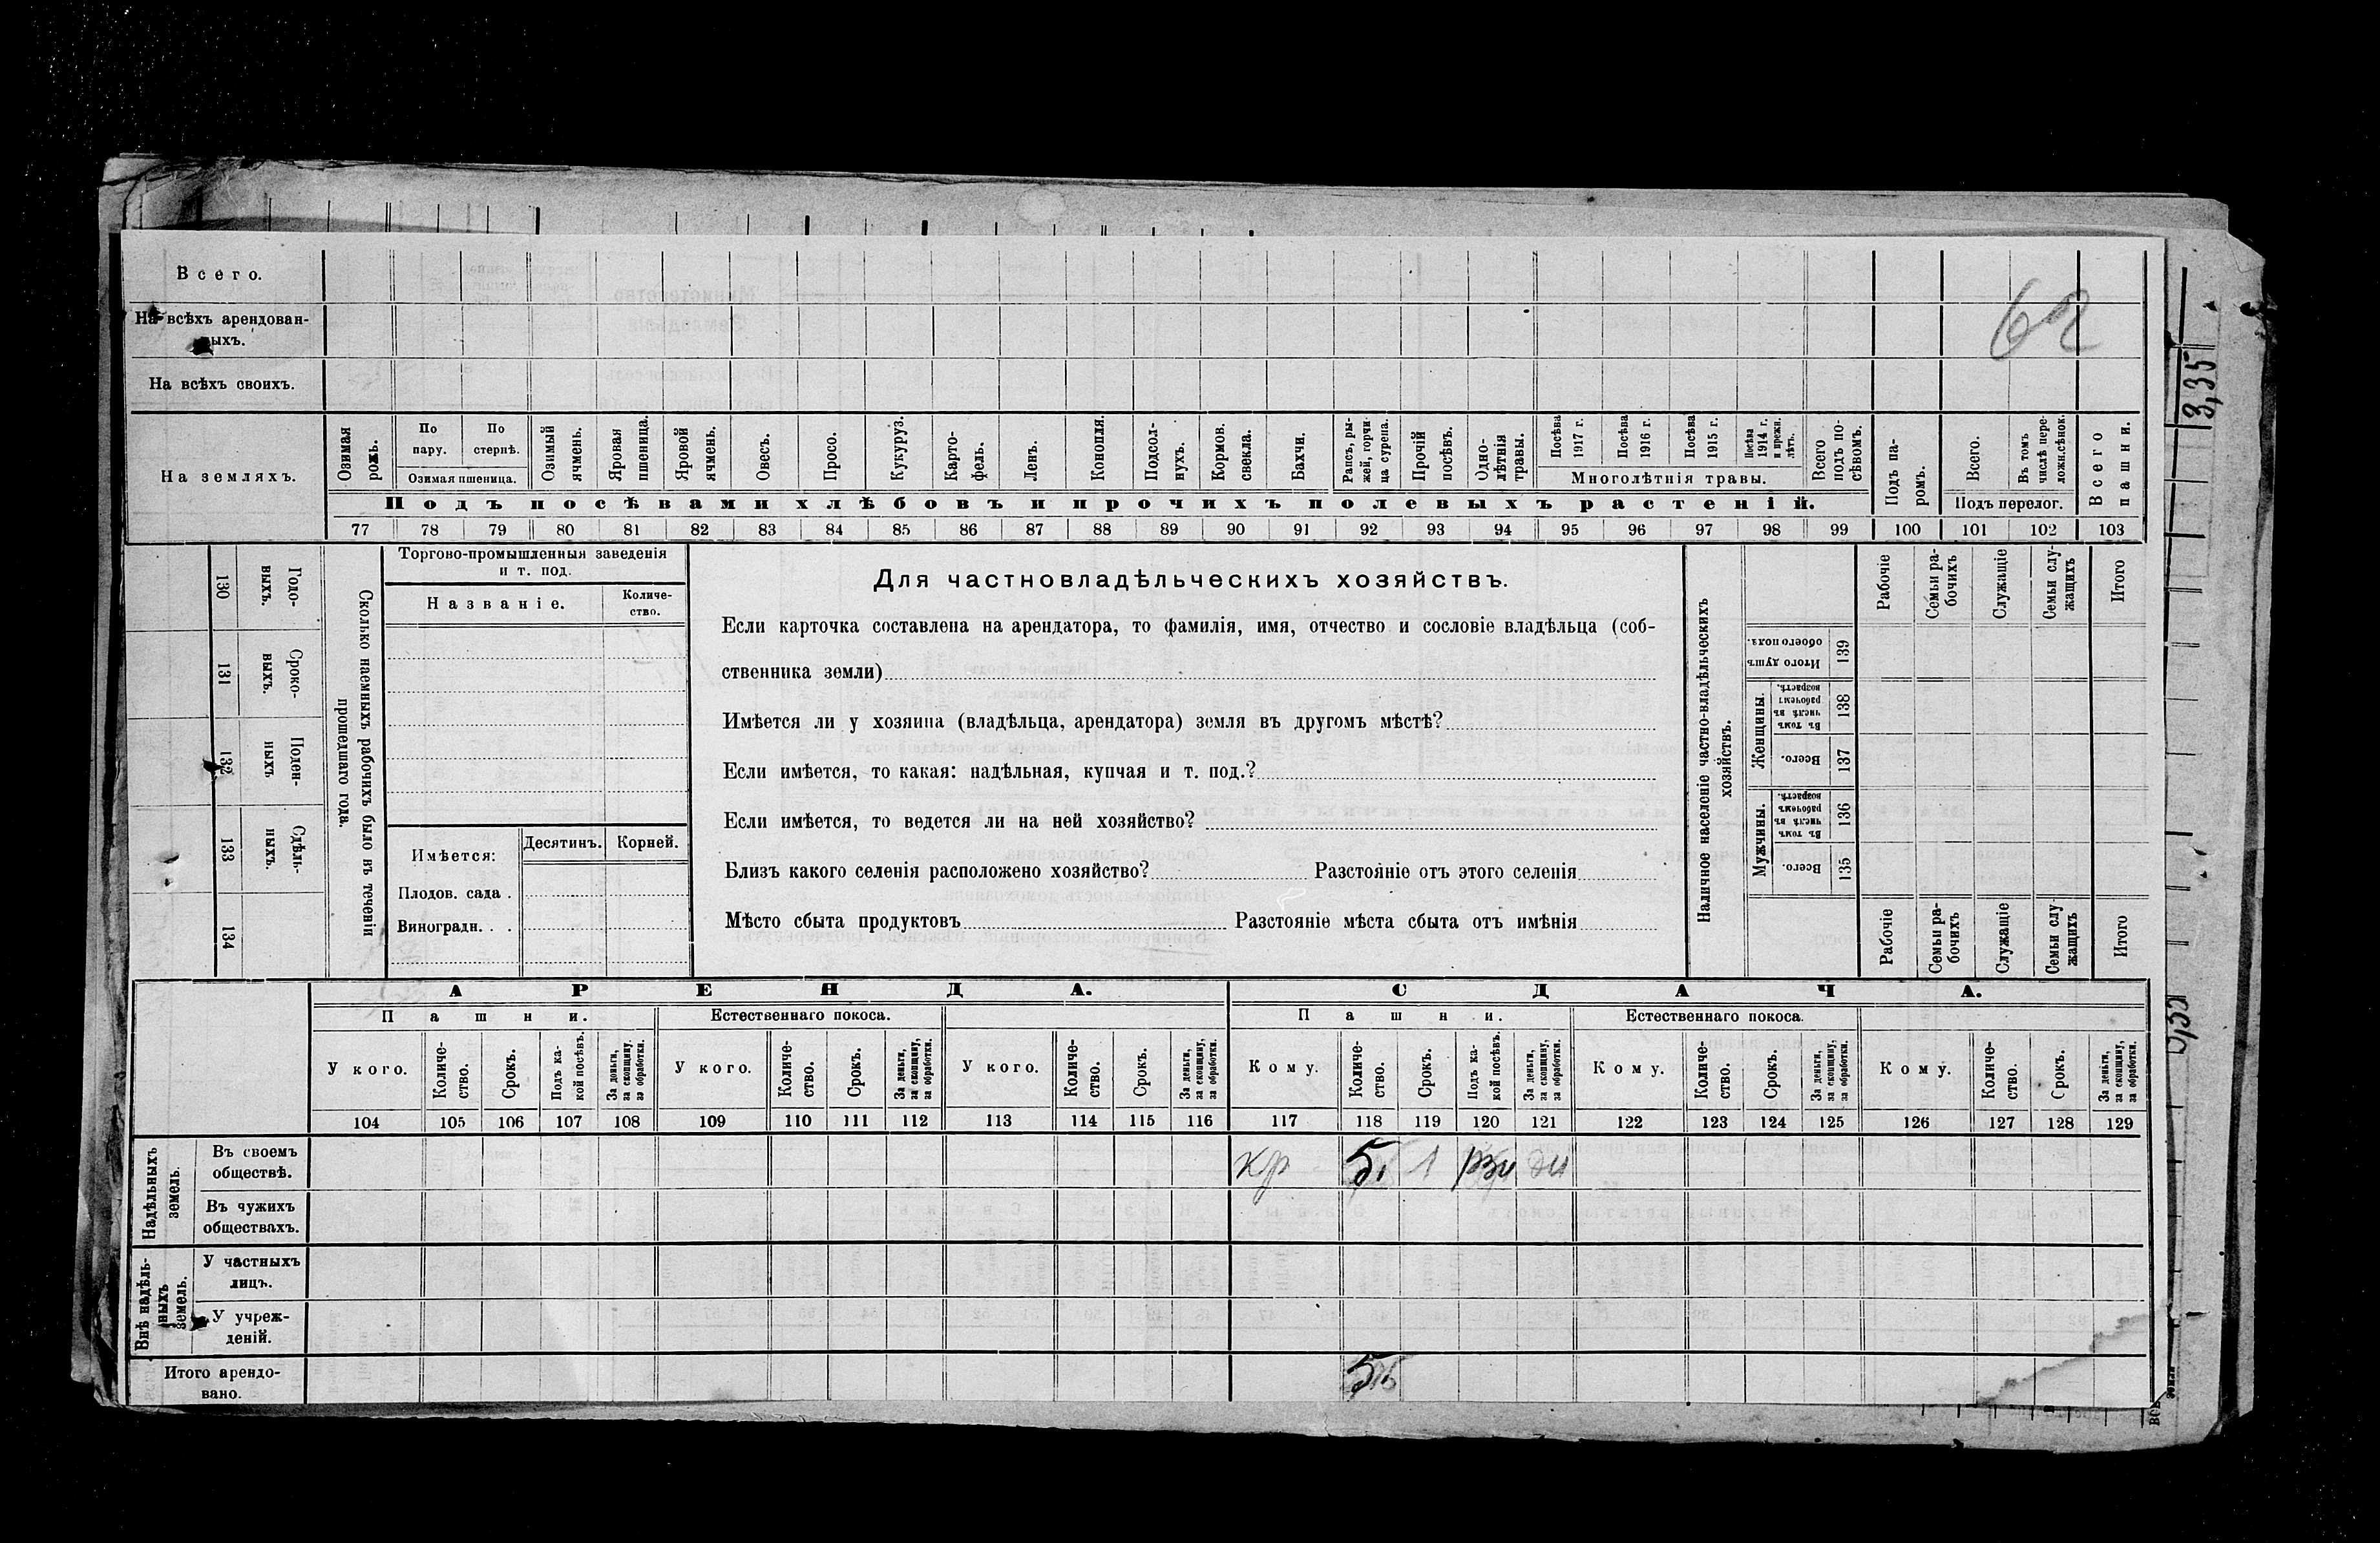 Всего.
62
На всѣхъ арендован-
ныхъ.
На всѣхъ своихъ.
3,35
На земляхъ.
Озимая рожь.
По пару.
По стернѣ.
Озимая пшеница.
Озимый ячмень.
Яровая пшеница.
Яровой ячмень.
Овесъ.
Просо.
Кукуруз.
Карто-фель.
Ленъ.
Конопля.
Подсол-нухъ.
Кормов. свекла.
Бахчи.
Рапсъ, ры-жей, горчи-ца сурепа.
Прочій посѣвъ.
Одно-лѣтнія травы.
Посѣва 1917 г.
Посѣва 1916 г.
Посѣва 1915 г.
Посѣва 1914 г. и прежн. лѣтъ.
Многолѣтнія травы.
Всего подъ по-сѣвомъ.
Подъ па-ромъ.
Всего.
Въ томъ числѣ пере-ложн.сѣнок.
Подъ перелог.
Всего пашни.
Подъ посѣвами хлѣбовъ и прочихъ полевыхъ растеній.
77 78 79 80 81 82 83 84 85 86 87 88 89 90 91 92 93 94 95 96 97 98 99 100 101 102 103
130 Годо-выхъ.
131 Сроко-выхъ.
132 Поден-ныхъ
133 Сдѣль-ныхъ.
134
Сколько наемныхъ рабочихъ было въ теченіи
прошедшаго года.
Торгово-промышленныя заведенія
и т. под.
Названіе.
Количе-ство.
Имѣется:
Десятинъ.
Корней.
Плодов. сада .
Виноградн. . .
Для частновладѣльческихъ хозяйствъ.
Если карточка составлена на арендатора, то фамилія, имя, отчество и сословіе владѣльца (соб-
ственника земли)
Имѣется ли у хозяина (владѣльца, арендатора) земля въ другомъ мѣстѣ?
Если имѣется, то какая: надѣльная, купчая и т. под.?
Если имѣется, то ведется ли на ней хозяйство?
Близъ какого селенія расположено хозяйство? Разстояніе отъ этого селенія
Мѣсто сбыта продуктовъ Разстояніе мѣста сбыта отъ имѣнія
Наличное населеніе частно-владѣльческихъ
хозяйствъ.
Рабочіе
Семьи ра-бочихъ
Служащіе
Семьи слу-жащихъ
Итого
Итого душъ обоего пола. 139
Женщины.
Въ томъ числѣ въ рабочемъ возрастѣ. 138
Всего. 137
Мужчины.
Въ томъ числѣ въ рабочемъ возрастѣ. 136
Всего. 135
Рабочіе
Семьи ра-бочихъ
Служащіе
Семьи слу-жащихъ
Итого
АРЕНДА. СДАЧА.
Пашни. Естественнаго покоса. Пашни. Естественнаго покоса.
У кого.
Количе-ство.
Срокъ.
Подъ ка-кой посѣвъ.
За деньги, за скопщину, за обработки.
У кого.
Количе-ство.
Срокъ.
За деньги, за скопщину, за обработки.
У кого.
Количе-ство.
Срокъ.
За деньги, за скопщину, за обработки.
Кому.
Количе-ство.
Срокъ.
Подъ ка-кой посѣвъ.
За деньги, за скопщину, за обработки.
Кому.
Количе-ство.
Срокъ.
За деньги, за скопщину, за обработки.
Кому.
Количе-ство.
Срокъ.
За деньги, за скопщину, за обработки.
104 105 106 107 108 109 110 111 112 113 114 115 116 117 118 119 120 121 122 123 124 125 126 127 128 129
Надѣльныхъ земель.
Въ своемъ
обществѣ.
кр 5, 1
Въ чужихъ
обществахъ.
Внѣ надѣль-ныхъ земель.
У частныхъ
лицъ.
У учреж-
деній.
Итого арендо-
вано.
5